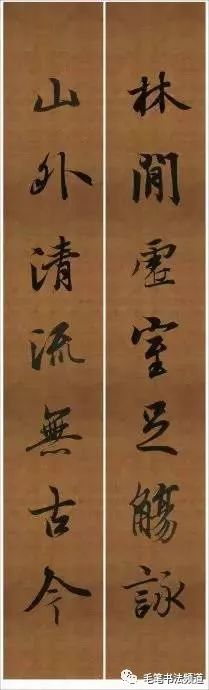 林閒虛室足觴詠
山外清流無古今
毛笔书法频道